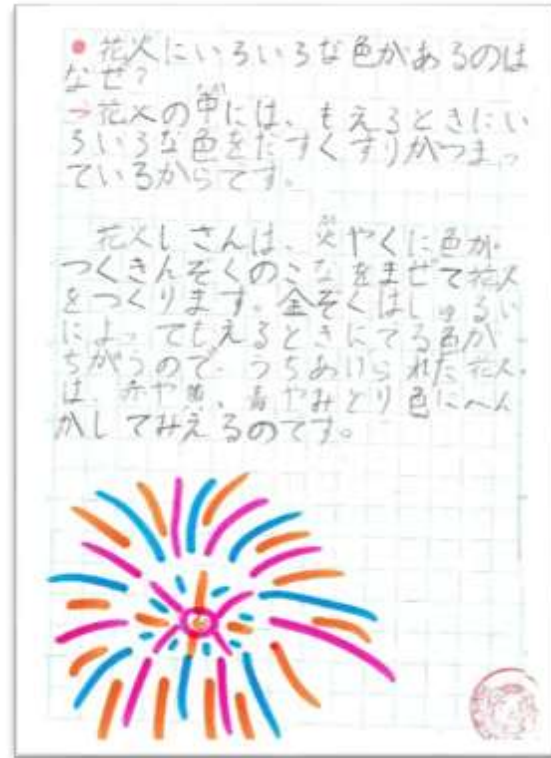 ●花火にいろいろな色があるのは
なぜ?
→花火の中には、もえるときにい
ろいろな色をだすくすりがつまっ
ているからです。
花火しさんは、火やくに色が
つくきんぞくのこなをまぜて花火
をつくります。金ぞくはしゅるい
によってもえるときにでる色が
ちがうので、うちあげられた花火
は、赤や、青やみどり色にへん
かしてみえるのです。